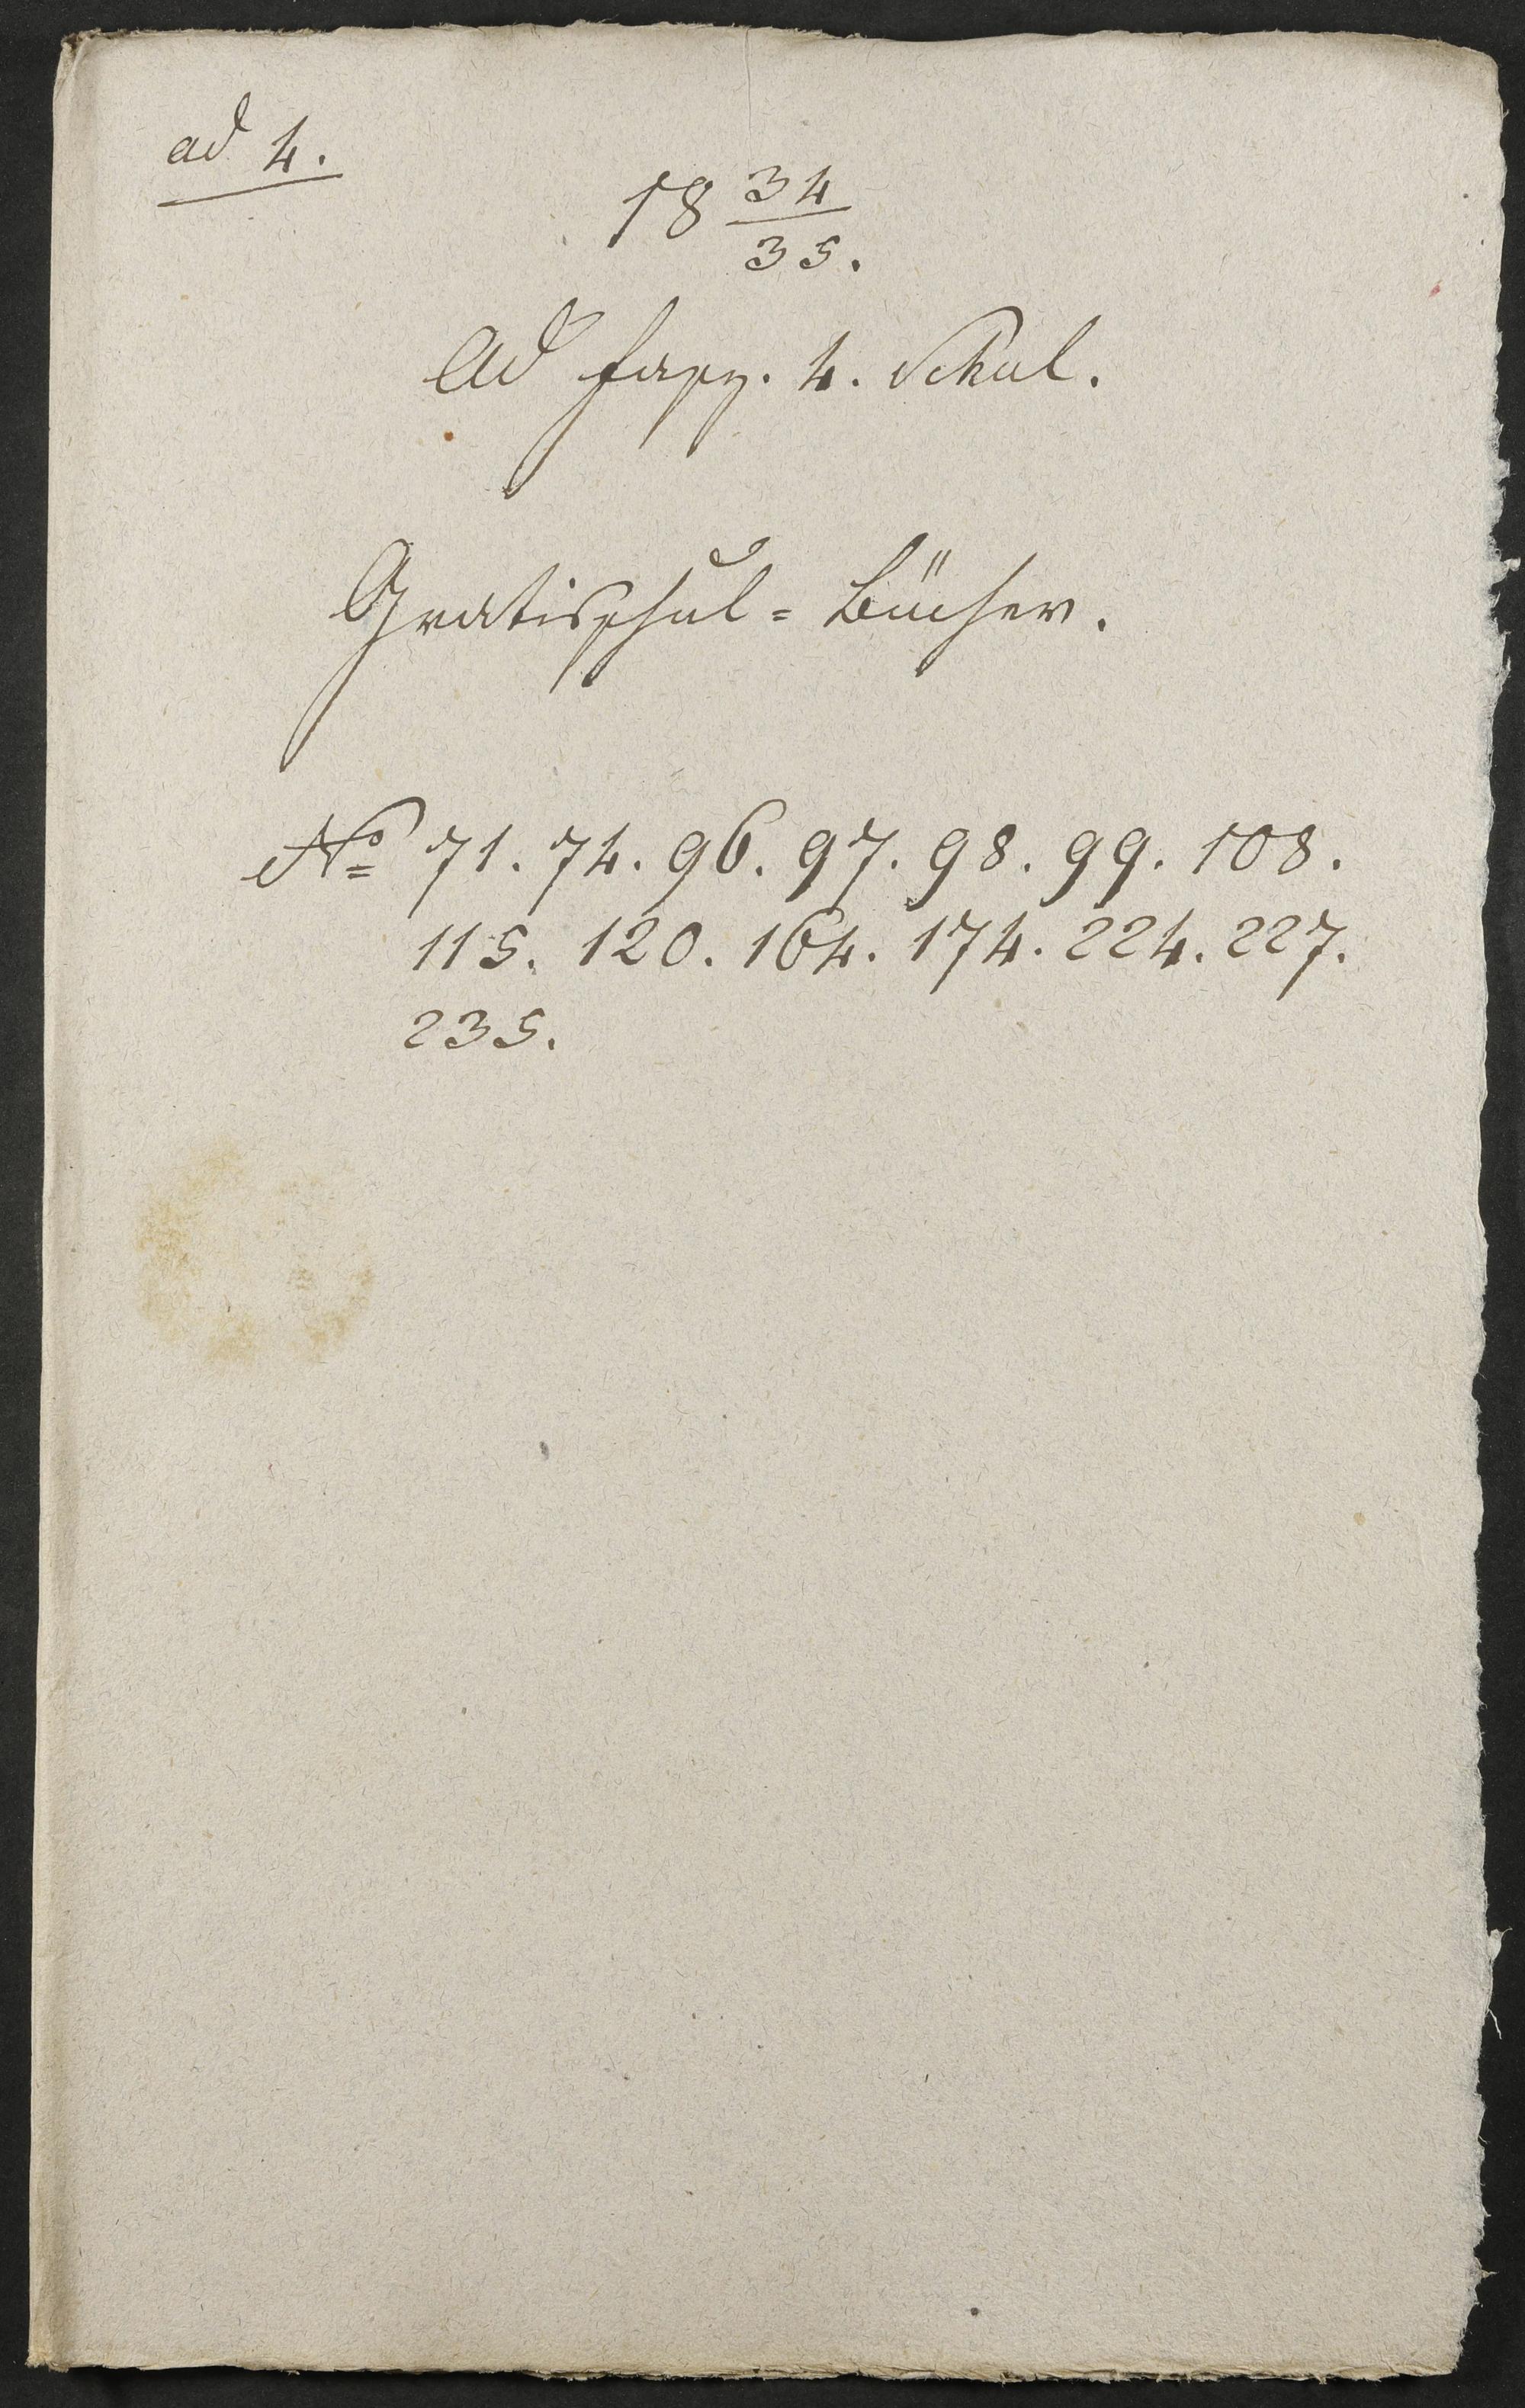 ad 4.
18 34/35.
Ad fasz. 4. Schul.
Gratisschul=Bücher.
No 71. 74. 96. 97. 98. 99. 108.
115. 120. 164. 174. 224. 227.
235.